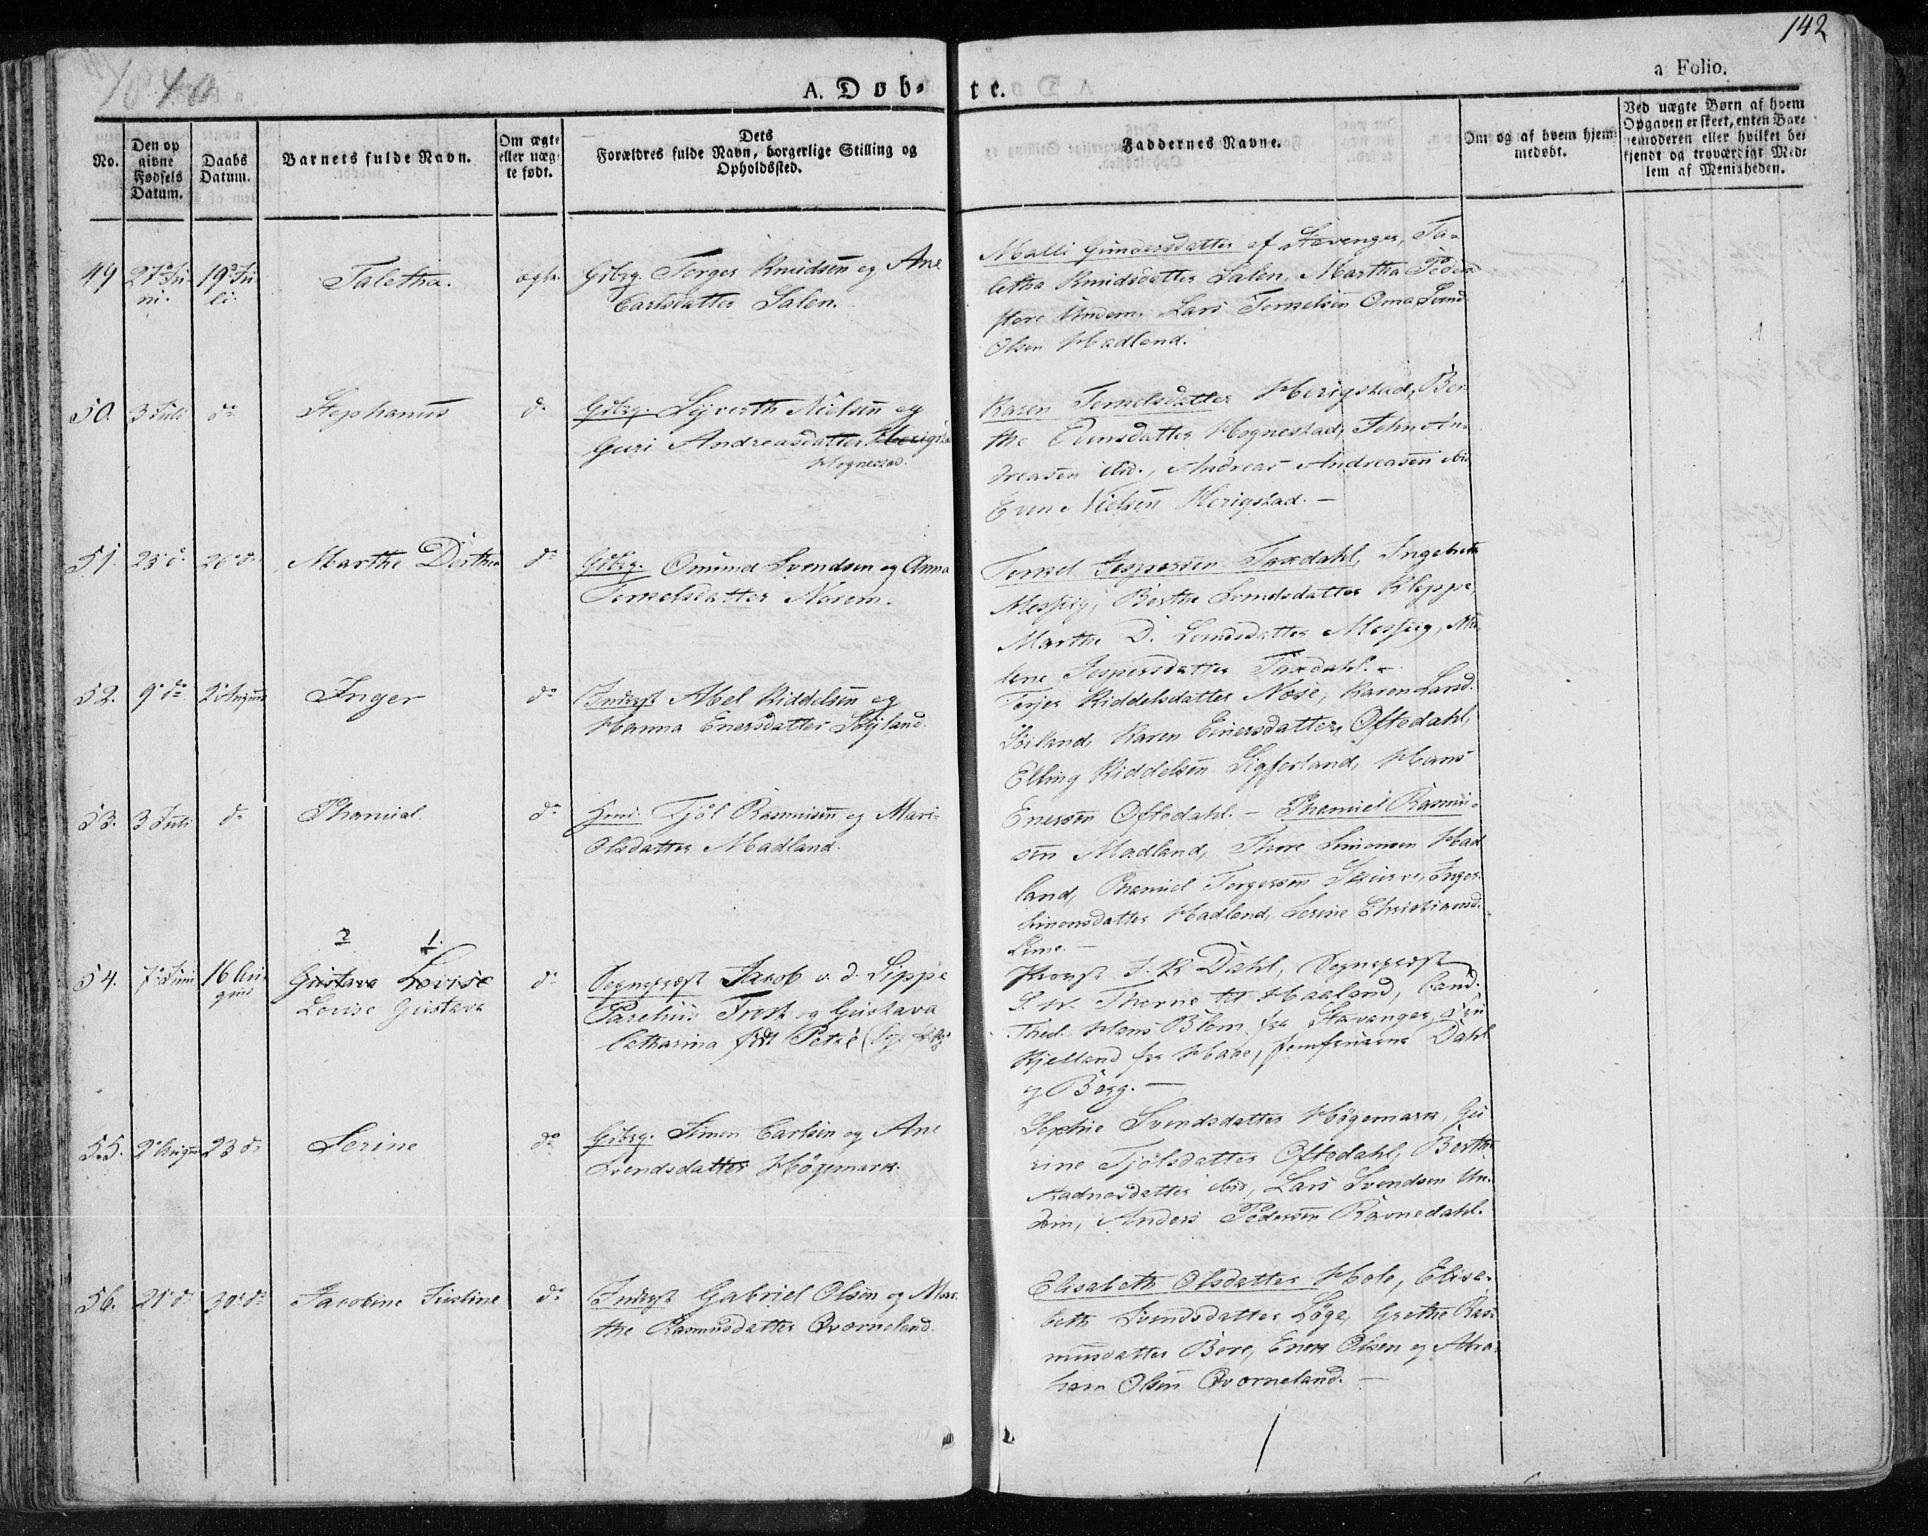 142
1840
A. Døb-
te.
a Folio.
No.
Den op
givne
Fødsels
Datum.
Daabs
Datum.
Barnets fulde Navn.
Om ægte
eller uæg-
te født.
Dets
Forældres fulde Navn, borgerlige Stilling og
Opholdssted.
Faddernes Navne.
Om og af hvem hjem-
medøbt.
Ved uægte Børn af hvem
Opgaven er skeet, enten Bar-
nemoderen eller hvilket be-
kjendt og troværdigt Med-
lem af Menigheden.
49 27 Ju-
ni. 19 Ju-
li. Taletha. ægte. Gbrg. Torger Knudsen og Ane
Carlsdatter Salen.
Malli Gundersdatter af Stavanger, Ta-
letha Knudsdatter Salen, Martha Peders-
Undem, Lars Torkelsen Oma, Svend
Olsen Hadland.
50. 3 Juli do Stephanus do Gbrg. Syverth Nielsen og
Guri Andreasdatter Herigstad
Hognestad.
Karen Torkelsdatter Herigstad, Ber-
the Evensdatter Hognestad, John An-
dreasen ibd., Andreas Andreasen ibid
Even Nielsen Herigstad. —
51. 25 d. 26 d. Marthe Dorthea do Gbrg. Omund Svendsen og Anna
Torkelsdatter Norem.
Torkel Jespersen Taxdahl, Ingeborg
Berthe Svendsdatter Kleppe,
Marthe D. Svendsdatter
lene Jespersdatter Taxdahl. —
52. 9 do 2 August Inger do Inderst Abel Kiddelsen og
Hanna Enersdatter Söyland.
Terjer Kiddelsdatter Nose, Karen Larsd.
Söiland, Karen Einersdatter Oftedahl,
Elling Kiddelsen Sigferland, Hans
Enersen Oftedahl. —
53. 3 Juli do Thamial. do Tjöl Rasmusen og Mari-
Olsdatter Madland.
Themiel Rasmu-
sen Madland, Thore Simonsen Had-
land, Themiel Torgersen Skurve, Inger
Simonsdatter Hadland, Serine Christiansd.
Lime. —
2 1.
54. 7 Juni 16 Au-
gust Gustava Lovise
Lovise Gustava do Sognepræst Jacob v. d. Lippe
Parelius Trost og Gustava
Catharina født Petré
Provst J. K. Dahl, Sognepræst
Thorne til Haaland, Cand.
Theol. Hans Blom fra Stavanger, Fru
Kjelland fra Haae, Jomfruerne Dahl
og Borg. —
55. 2 August 23 do Serine do Gbrg. Simon Carlsen og Ane
Svendsdatter Högemark.
Sophie Svendsdatter Högemark, Gu-
rine Tjölsdatter Oftedahl, Berthe
Aadnesdatter ibid, Lars Svendsen Un-
dem, Anders Pedersen Ravnedahl.
56. 21 do 30 do Jacobine Justine do Inderst Gabriel Olsen og Mar-
the Rasmusdatter Qværneland.
Elisabeth Olsdatter Hole, Elisa-
beth Svendsdatter Löge, Grethe Ras-
musdatter Bore, Ener Olsen og Abra-
ham Olsen Qværneland. —